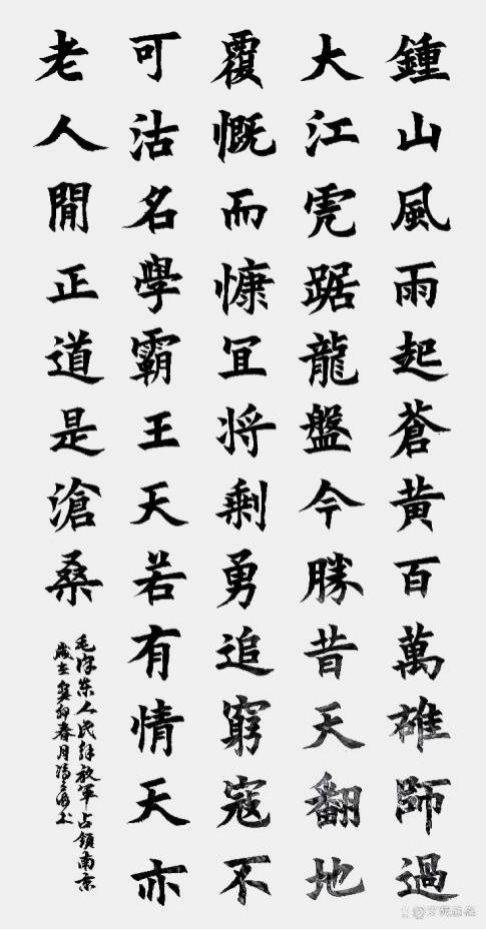 鍾山風雨起蒼黃百萬雄師過
大江虎踞龍盤今勝昔天翻地
覆慨而慷冝将剩勇追窮寇不
可沽名學霸王天若有情天亦
老人閒正道是滄桑
毛泽东人民解放军占領南京
歲在癸卯春月